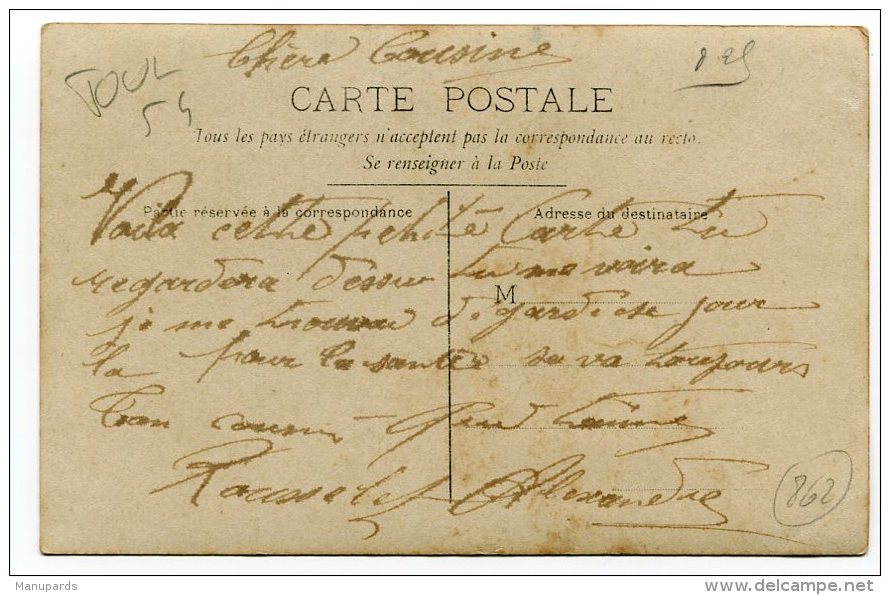 Chère Cousine
TOUL
54
CARTE POSTALE
Tous les pays étrangers n'acceptent pas la correspondance au recto.
Se renseigner à la Poste
Partie réservée à la correspondance
Adresse du destinataire
Voila cette petite Carte tu
regardera dessu tu me voira
M
je me trouvau de garde ce jour
la pour la santée sa va toujours
bon
Rousselet Alexandre
862
Manupards
delcampe.net